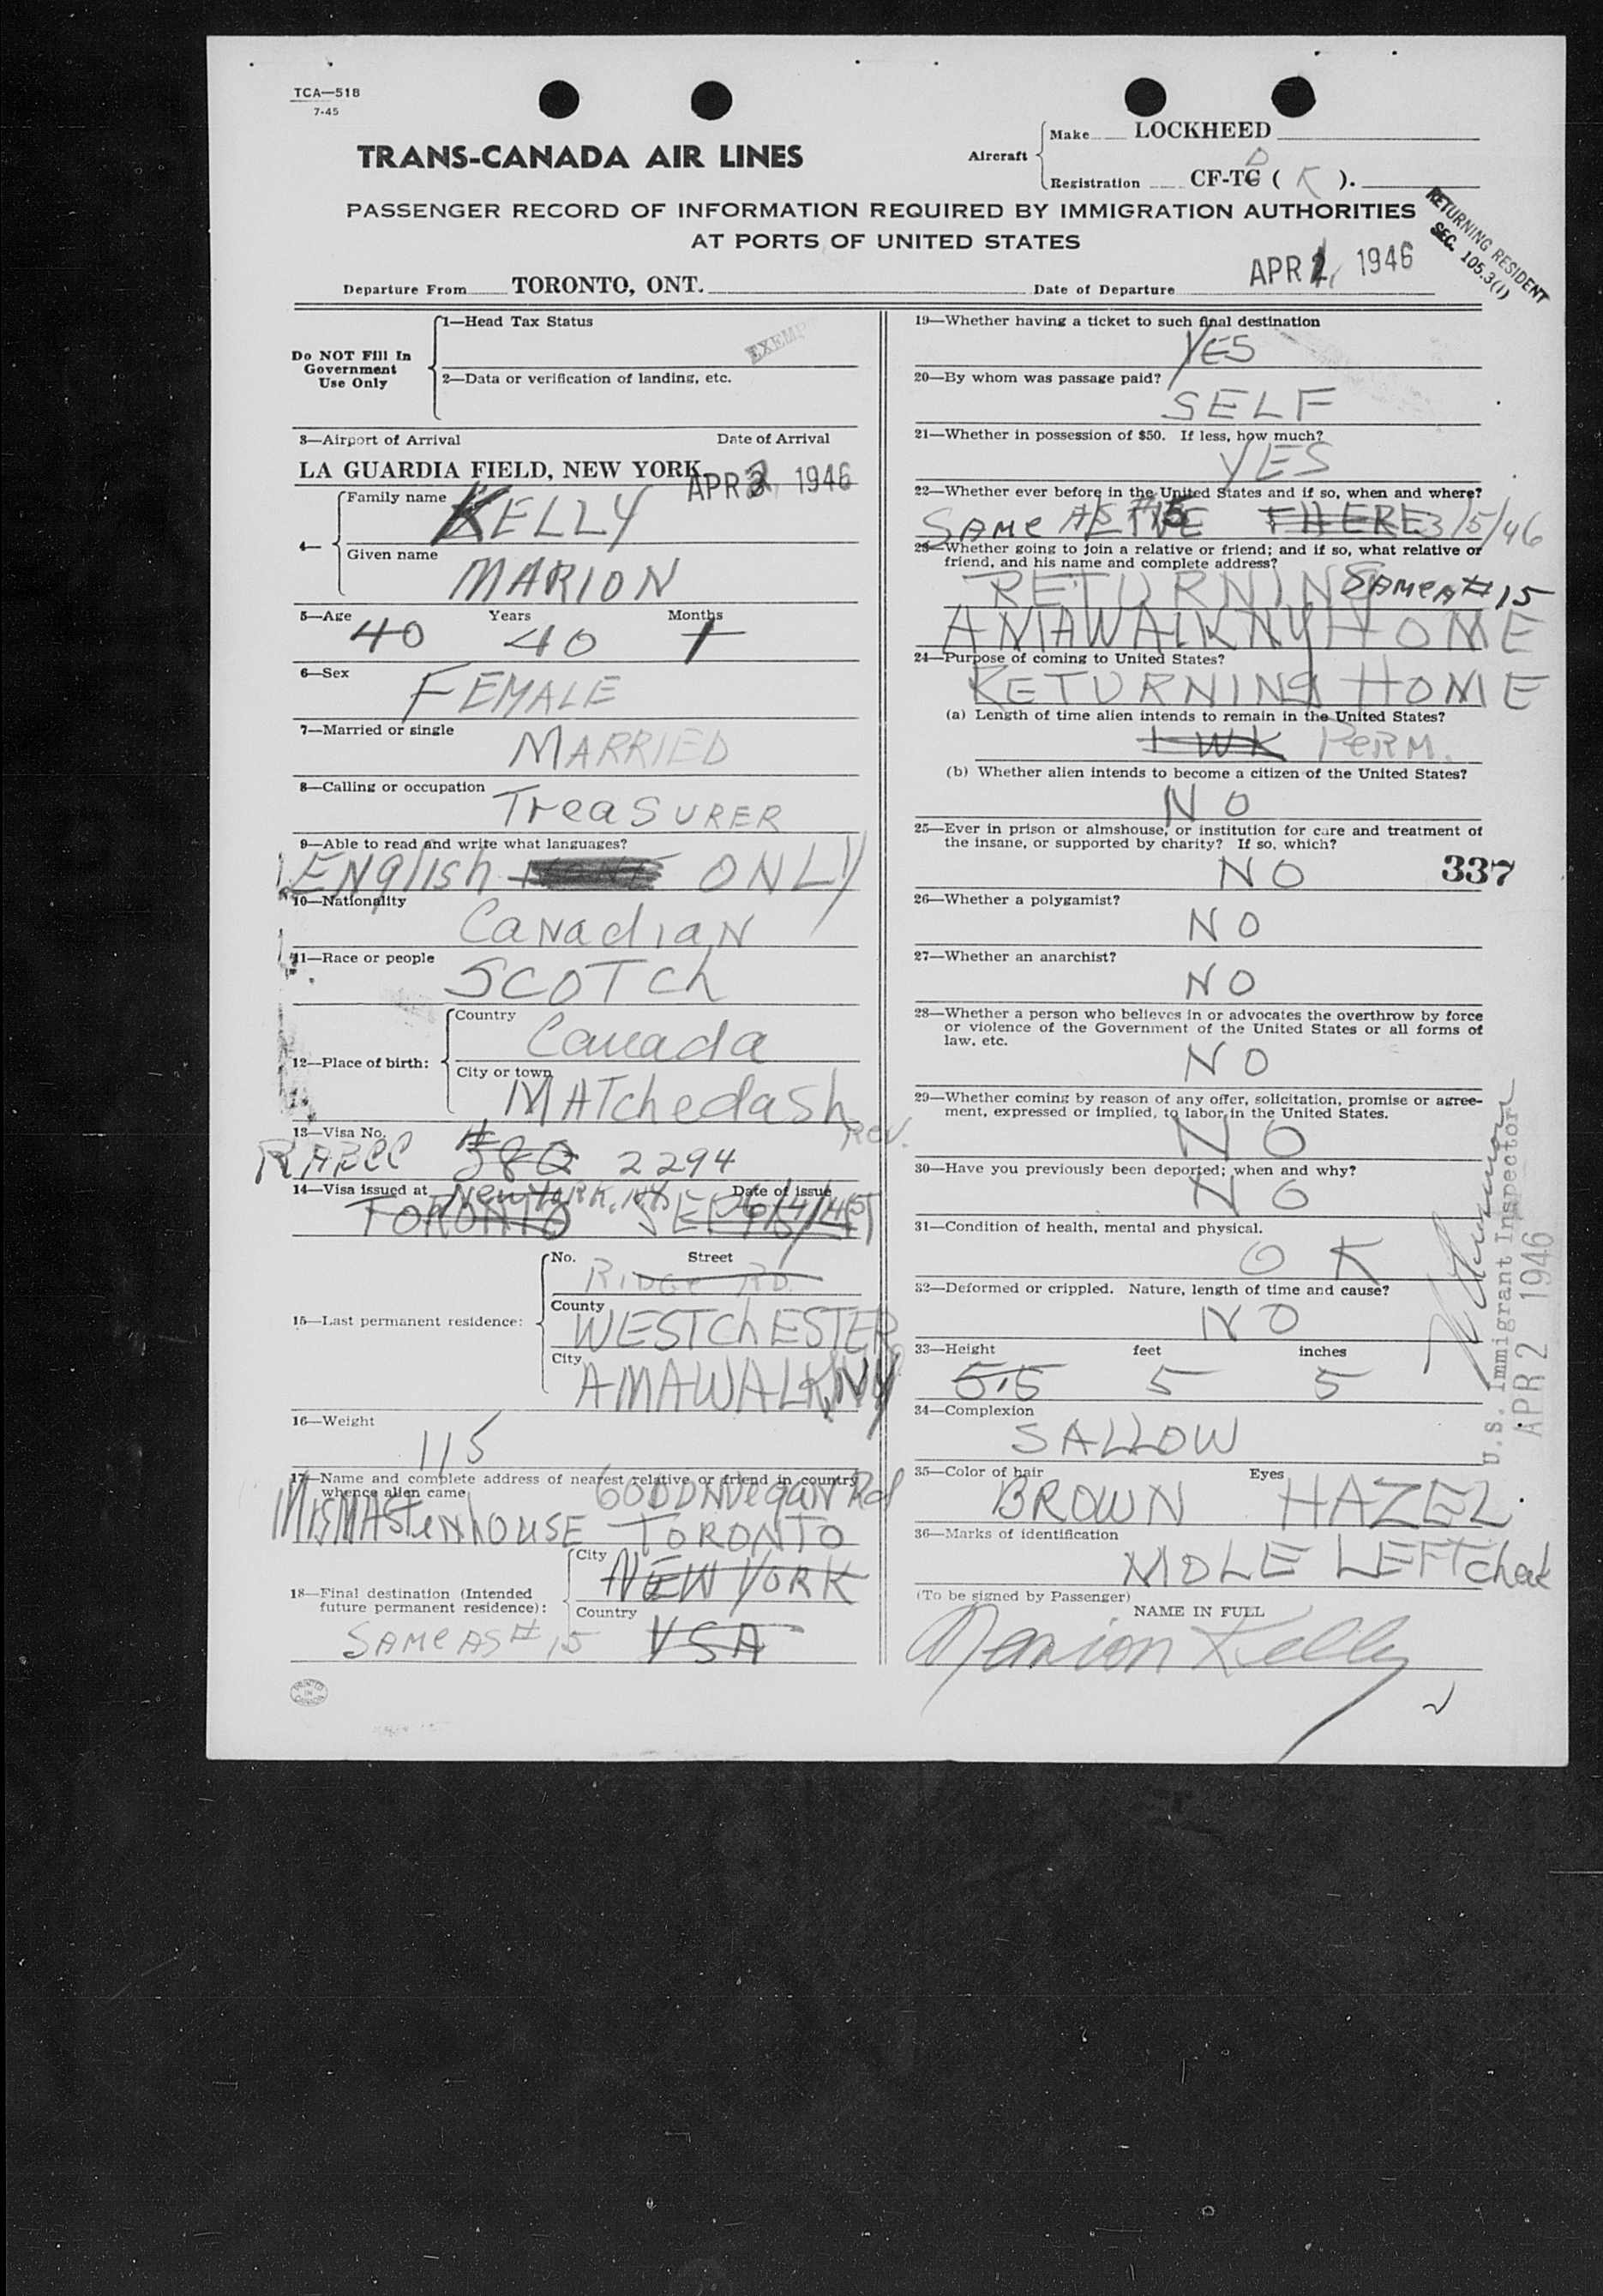 TCA—518
7-45
TRANS-CANADA AIR LINES
Aircraft
Make LOCKHEED
Registration CF-TC ( K ).
D
PASSENGER RECORD OF INFORMATION REQUIRED BY IMMIGRATION AUTHORITIES
AT PORTS OF UNITED STATES
RETURNING RESIDENT
SEC. 105.3(1)
Departure From TORONTO, ONT. Date of Departure APR 1946
Do NOT Fill In
Government
Use Only
1—Head Tax Status
EXEMP
2—Data or verification of landing, etc.
3—Airport of Arrival Date of Arrival
LA GUARDIA FIELD, NEW YORK APR 1946
4—
Family name KELLY
Given name MARION
5—Age Years Months
40 40 1
6—Sex FEMALE
7—Married or single MARRIED
8—Calling or occupation TreaSURER
9—Able to read and write what languages?
ENglish ONLY
10—Nationality
CaNadiaN
11—Race or people
SCOTCh
12—Place of birth:
Country
Canada
City or town
MATchedaSh
13—Visa No. Rev.
RABCC #380 2294
14—Visa issued at New YORK, NY Date of issue
TORONTO SEP 6/4/45
15—Last permanent residence:
No. Street
RIDGe RD.
County
WESTChESTER
City
AMAWALK, NY
16—Weight
115
17—Name and complete address of nearest relative or friend in country
whence alien came
TORONTO
18—Final destination (Intended
future permanent residence):
City
NEW YORK
Country
SAMe AS # 15 USA
19—Whether having a ticket to such final destination
YES
20—By whom was passage paid?
SELF
21—Whether in possession of $50. If less, how much?
YES
22—Whether ever before in the United States and if so, when and where?
SAMe AS #15 THERE 3/5/46
23—Whether going to join a relative or friend; and if so, what relative or
friend, and his name and complete address?
RETURNING SAMe A # 15
AMAWALK NY HOME
24—Purpose of coming to United States?
RETURNING HOME
(a) Length of time alien intends to remain in the United States?
1 WK PeRM.
(b) Whether alien intends to become a citizen of the United States?
NO
25—Ever in prison or almshouse, or institution for care and treatment of
the insane, or supported by charity? If so, which?
NO 337
26—Whether a polygamist?
NO
27—Whether an anarchist?
NO
28—Whether a person who believes in or advocates the overthrow by force
or violence of the Government of the United States or all forms of
law, etc.
NO
29—Whether coming by reason of any offer, solicitation, promise or agree-
ment, expressed or implied, to labor in the United States.
NO
30—Have you previously been deported; when and why?
NO
31—Condition of health, mental and physical.
OK
32—Deformed or crippled. Nature, length of time and cause?
NO
33—Height feet inches
5,5 5 5
34—Complexion
SALLOW
35—Color of hair Eyes
BROWN HAZEL
36—Marks of identification
MOLE LEFT chek
(To be signed by Passenger)
NAME IN FULL
Marion Kelly
U.S. Immigrant Inspector
APR 2 1946
PRINTED IN CANADA